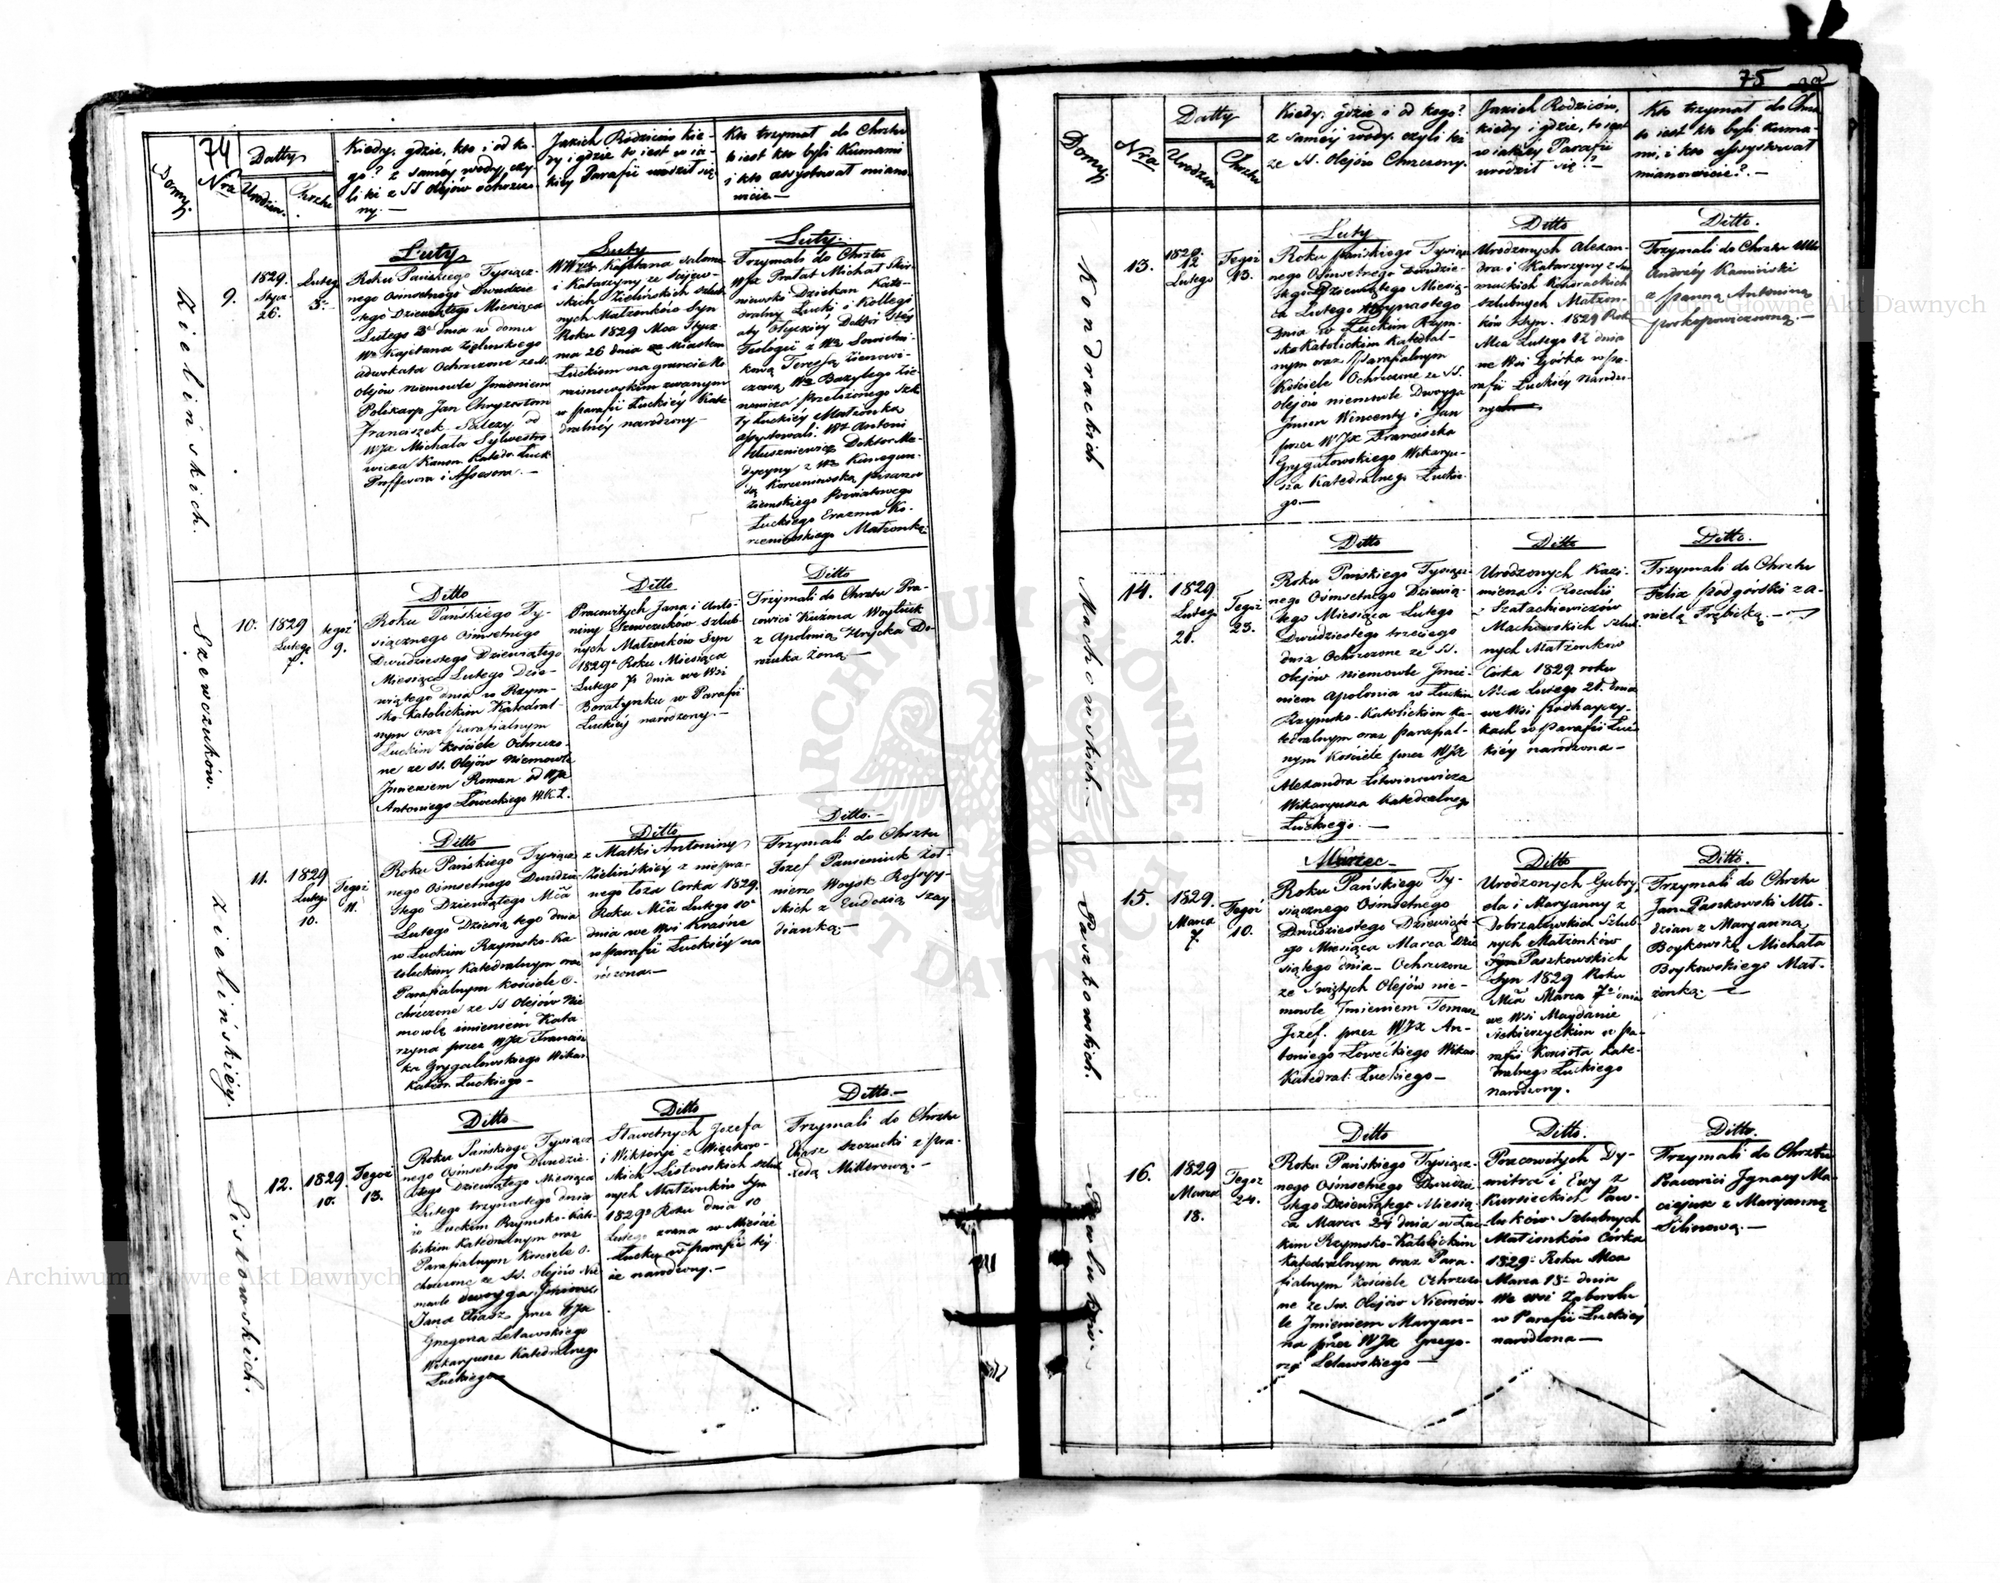 74
Domy.
Nra
Datty
Urodzin.
Chrztu
Kiedy, gdzie, kto i od ko-
go? z samey wody, czy-
li też z SS olejów ochrzczo-
ny. —
Jakich Rodziców kie-
dy i gdzie to iest w ia-
kiey Parafii urodził się
Kto trzymał do Chrztu
to iest kto byli Kumami
i kto assystował miano-
wicie —
Zielińskich.
9.
1829.
Stycz.
26.
Lutego
3.
Luty
Roku Pańskiego Tysiącz-
nego Ośmsetnego Dwudzie
stego Dziewiątego Miesiąca
Lutego 3 dnia w domu
Wo Kajetana Zielińskiego
adwokata Ochrzczone ze SS.
olejów niemowle Jmieniem
Polikarp Jan Chryzostom
Franciszek Salezy, od
WJX Michała Sylwestro-
wicza Kanon. Katedr. Łuck
Proffesora i Assesora. —
Luty
Kajetana Salomei
i Katarzyny ze
Zielińskich szlub-
nych Małżonków Syn
Roku 1829 Mca Stycz
nia 26 dnia w Miastem
Łuckiem na gruncie
zwanym
w parafii Łuckiéy Kate
dralnéy narodzony —
Luty.
Trzymali do Chrztu
WJX Prałat Michał
Dziekan Kate-
dralny Łucki i Kollegi
aty Ołyckiey Doktor Stéy
Teologii z
Teresą
Bazylego
Małżonką
assystowali. Antoni
Doktor Me-
dycyny z Kunegun-
dą Korzeniowską
Ziemskiego Powiatowego
Łuckiego Erazma Ko-
rzeniowskiego Małżonką.
Szewczuków.
10.
1829
Lutego
7.
tegoż
9.
Ditto
Roku Pańskiego Ty-
siącznego Ośmsetnego
Dwudziestego Dziewiątego
Miesiąca Lutego Dzie-
wiątego dnia w Rzym-
sko-Katolickim Katedral-
nym oraz Parafialnym
Łuckim Kościele Ochrzczo-
ne ze SS. Olejów Niemowle
Jmieniem Roman od WJX
Antoniego Łoweckiego W.K.Ł.
Ditto
Pracowitych Jana i Anto-
niny Szewczuków szlub-
nych Małżonków Syn
1829 Roku Miesiąca
Lutego 7 dnia we Wsi
Boratynku w Parafii
Łuckiéy narodzony. —
Ditto
Trzymali do Chrztu Pra-
cowici Kuzma
z Apolonią Do-
żoną —
Zielińskiéy.
11.
1829
Lutego
10.
Tegoż
11.
Ditto
Roku Pańskiego Tysiącz
nego Ośmsetnego Dwudzie-
stego Dziewiątego Mca
Lutego dnia
w Łuckim Rzymsko-Ka
tolickim, Katedralnym oraz
Parafialnym Kościele O-
chrzczone ze SS Olejów Nie
mowlę imieniem Kata
rzyna przez WJX Francisz
ka Grygałowskiego Wikar.
Katedr. Łuckiego —
Ditto
z Matki Antoniny
Zielińskiéy z niepra-
wego łoża Corka 1829.
Roku Mca Lutego 10
dnia we Wsi Kraśne
w parafii Łuckiéy na
rodzona. —
Ditto. —
Trzymali do Chrztu
Jozef Panieniuk Żoł-
nierz Woysk Rossyy-
skich z Eudoxią Szay
dianką. —
Listowskich.
12.
1829
10.
Tegoż
13.
Ditto
Roku Pańskiego Tysiącz
nego Ośmsetnego Dwudzie-
stego Dziewiątego Miesiąca
Lutego trzynastego dnia
w Łuckim Rzymsko-Kato-
lickim Katedralnym oraz
Parafialnym Kosciele O-
chrzczone ze SS. Olejów Nie
mowle dwoyga Jmionami
Jana Eliasz przez WJX
Grzegorza Letawskiego
Wikaryusza Katedralnego
Łuckiego
Ditto
Sławetnych Jozefa
i Wiktoryi z
Listowskich szlub
nych Małżonków Syn
1829 Roku dnia 10
Lutego w Mieście
Łucku w parafii téy
że narodzony. —
Ditto. —
Trzymali do Chrztu
Eliasz Szczucki z
Millerową. —
75
Domy.
Nra
Datty
Urodzin
Chrztu
Kiedy, gdzie i od kogo?
z saméy wody, czyli też
ze SS. Olejów Chrzczony.
Jakich Rodziców,
kiedy i gdzie, to iest
w iakiéy Parafii
urodził się? —
Kto trzymał do Chrz
to iest kto byli Kuma-
mi, i kto assystował
mianowicie?. —
Kondrackich
13.
1829.
12
Lutego
Tegoż
13.
Luty
Roku Pańskiego Tysiącz-
nego Ośmsetnego Dwudzie-
stego Dziewiątego Miesią-
ca Lutego trzynastego
Dnia w Łuckim Rzym-
sko Katolickim Katedral-
nym oraz Parafialnym
Kościele Ochrzczone ze SS.
Olejów niemowle Dwoyga
Jmion Wincenty i Jan
przez WJX Franciszka
Grygałowskiego Wikaryu-
sza Katedralnego Łuckie-
go. —
Ditto
Urodzonych Alexan-
dra i Katarzyny z
Kondrackich
szlubnych Małżon-
ków Syn. 1829 Roku
Mca Lutego 12 dnia
we Wsi Gorka w pa-
rafii Łuckiéy narodzo-
ny
Ditto.
Trzymali do Chrztu
Andrzéy Kamiński
z Panną Antoniną
Prokopowiczowną. —
Machowskich. —
14.
1829
Lutego
21.
Tegoż
23.
Ditto
Roku Pańskiego Tysiącz-
nego Ośmsetnego Dziewią-
tego Miesiąca Lutego
Dwudziestego trzeciego
dnia Ochrzczone ze SS.
Olejów niemowle Jmie-
niem Apolonia w Łuckim
Rzymsko-Katolickim Ka-
tedralnym oraz Parafial-
nym Kościele przez WJX
Alexandra Litwinowicza
Wikaryusza Katedralnego
Łuckiego. —
Ditto
Urodzonych Kazi-
mierza i Rozalii
z Szałachiewiczów
Machowskich szlub-
nych Małżonków
Córka 1829 roku
Mca Lutego 21. dnia
we Wsi Podhayczy-
kach w Parafii Łuc-
kiéy narodzona —
Ditto.
Trzymali do Chrztu
Felix Podgórski z A-
nielą Trębicką. —
Paszkowskich.
15.
1829.
Marca
7.
Tegoż
10.
Marzec
Roku Pańskiego Ty-
siącznego Ośmsetnego
Dwudziestego Dziewiąte-
go Miesiąca Marca Dzie
siątego dnia — Ochrzczone
ze Swiętych Olejów nie-
mowle Jmieniem Tomasz
Jozef. przez WJX An-
toniego Łoweckiego Wikar.
Katedral: Łuckiego —
Ditto
Urodzonych Gabry-
ela i Maryanny z
Dobrzalewskich Szlub-
nych Małżonków
Paszkowskich
Syn 1829 Roku
Mca Marca 7 dnia
we Wsi Maydanie
w Pa-
rafii Kościoła Kate-
dralnego Łuckiego
narodzony.
Ditto.
Trzymali do Chrztu
Jan Paszkowski Mło-
dzian z Maryanną
Boykowską Michała
Boykowskiego Mał-
żonką. —
Pawluków. —
16.
1829
Marca
18.
Tegoż
24.
Ditto
Roku Pańskiego Tysiącz-
nego Ośmsetnego Dwudzie
stego Dziewiątego Miesią-
ca Marca 24 dnia w Łuc
kim Rzymsko-Katolickim
Katedralnym oraz Para-
fialnym Kościele Ochrzczo
ne ze Sw. Olejów Niemow-
le Jmieniem Maryan-
na przez WJX Grzego-
rza Letawskiego —
Ditto.
Pracowitych Dy-
mitra i Ewy z
Kursieckich Paw-
luków Szlubnych
Małżonków Córka
1829 Roku Mca
Marca 18 dnia
We Wsi Zaborolu
w Parafii Łuckiéy
narodzona —
Ditto.
Trzymali do Chrztu
Pracowici Jgnacy Ma-
ciejuk z Maryanną
Silinową. —
Archiwum Główne Akt Dawnych
Archiwum Główne Akt Dawnych
ARCHIWUM GŁÓWNE AKT DAWNYCH